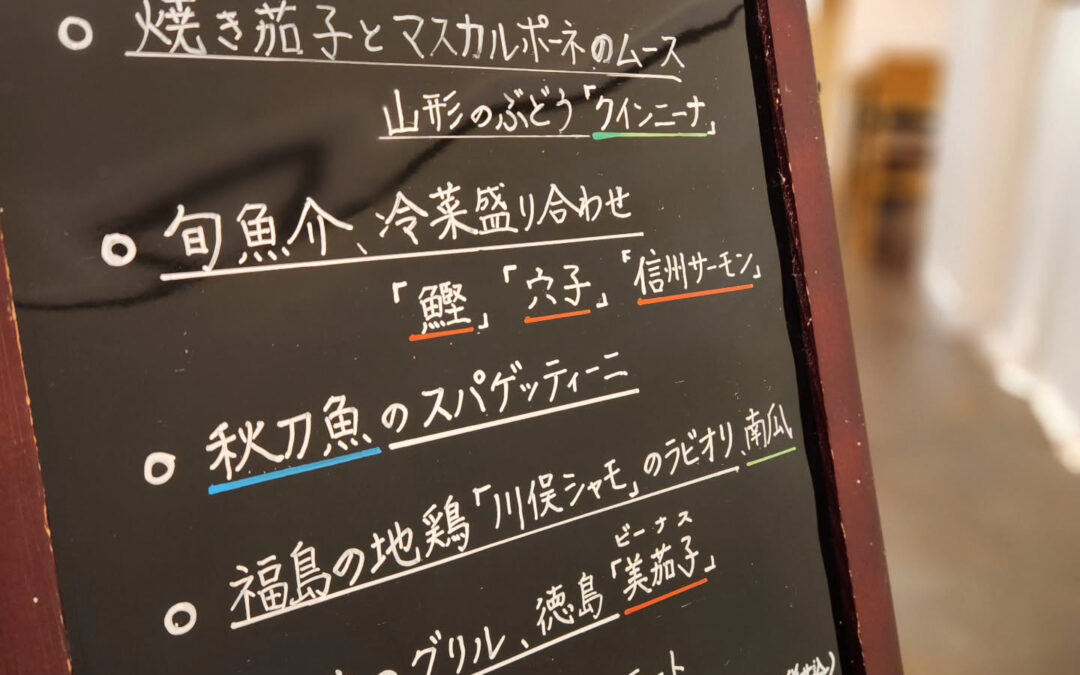 ○ 焼き茄子とマスカルポーネのムース
山形のぶどう「クインニーナ」
○ 旬魚介、冷菜盛り合わせ
「鰹」「穴子」「信州サーモン」
○ 秋刀魚のスパゲッティーニ
○ 福島の地鶏「川俣シャモ」のラビオリ、南瓜
ビーナス
のグリル、徳島「美茄子」